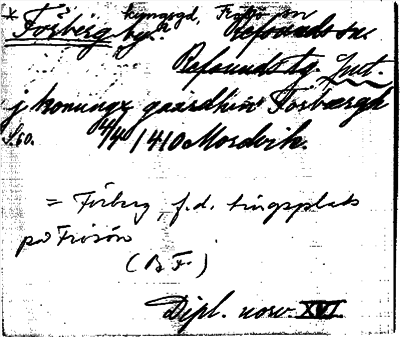 * Forberg kungsgd, Frösö sn
Refsunds sn.
Refsunds tg. Jmt.
j konungx gaardhin Forbærgh
S. 60. 4/4 1410 Mordvik.
= Forberg, f.d. tingsplats
på Frösön
(B F.)
Dipl. norv. XVI